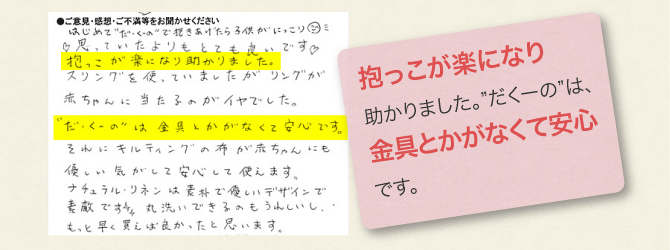 ●ご意見・感想・ご不満等をお聞かせください
はじめて"だ・く・の"で抱きあげたら子供がにっこり
♡思っていたよりもとても良いです♡
抱っこが楽になり助かりました。
スリングを使っていましたがリングが
赤ちゃんに当たるのがイヤでした。
"だ・く一の"は金具とかがなくて安心です。
それにキルティングの布が赤ちゃんにも
優しい気がして安心して使えます。
ナチュラル・リネンは素朴で優しいデザインで
素敵です 丸洗いできるのもうれしいし、・
もっと早く買えば良かったと思います。
抱っこが楽になり
助かりました。”だくーの”は、
金具とかがなくて安心
です。